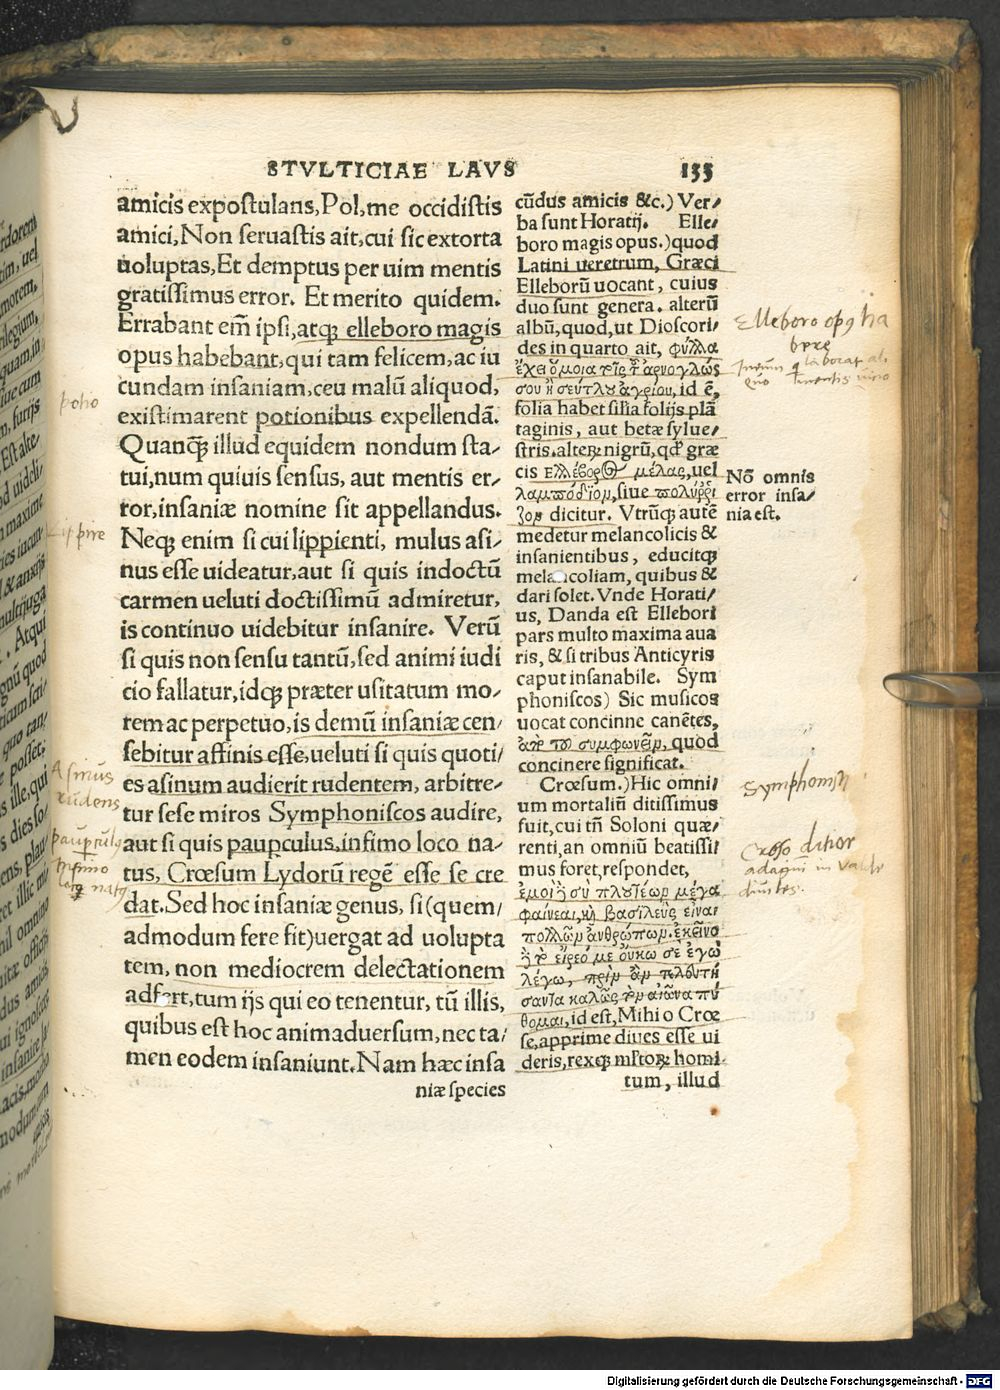 STVLTICIAE LAVS 155
amicis expostulans, Pol, me occidistis
amici, Non seruastis ait, cui sic extorta
uoluptas, Et demptus per uim mentis
gratissimus error. Et merito quidem.
Errabant em̄ ipsi, atq; elleboro magis
opus habebant, qui tam felicem, ac iu
cundam insaniam, ceu malū aliquod,
existimarent potionibus expellendā.
Quanq̃; illud equidem nondum sta-
tui, num quiuis sensus, aut mentis er-
ror, insaniæ nomine sit appellandus.
Neq; enim si cui lippienti, mulus asi-
nus esse uideatur, aut si quis indoctū
carmen ueluti doctissimū admiretur,
is continuo uidebitur insanire. Verū
si quis non sensu tantū, sed animi iudi
cio fallatur, idq; præter usitatum mo-
rem ac perpetuo, is demū insaniæ cen-
sebitur affinis esse, ueluti si quis quoti-
es asinum audierit rudentem, arbitre-
tur sese miros Symphoniscos audire,
aut si quis paupculus, infimo loco na-
tus, Crœsum Lydorū regē esse se cre
dat. Sed hoc insaniæ genus, si (quem-
admodum fere fit) uergat ad uolupta
tem, non mediocrem delectationem
adfert, tum ijs qui eo tenentur, tū illis,
quibus est hoc animaduersum, nec ta-
men eodem insaniunt. Nam hæc insa
niæ species
cūdus amicis &c.) Ver-
ba sunt Horatij. Elle-
boro magis opus.) quod
Latini ueretrum, Græci
Elleborū uocant, cuius
duo sunt genera. alterū
albū, quod, ut Dioscori-
des in quarto ait, φύλλα
ἔχει ὅμοια τοῖς τ̃ ἀρνογλώς
σου ἢ σεύτλου ἀγρίου, id ē,
folia habet silia folijs plā
taginis, aut betæ sylue-
stris. alteꝝ nigrū, qd̃ græ
cis ἐλλέβορ⊙ μέλας, uel
λαμπόδιον, siue πολύρρι
ζον dicitur. Vtrūq; autē
medetur melancolicis &
insanientibus, educitq;
melancoliam, quibus &
dari solet. Vnde Horati-
us, Danda est Ellebori
pars multo maxima aua
ris, & si tribus Anticyris
caput insanabile. Sym
phoniscos) Sic musicos
uocat concinne canētes,
ἀπὸ τοῦ συμφωνεῖν, quod
concinere significat.
Crœsum.) Hic omni-
um mortaliū ditissimus
fuit, cui tñ Soloni quæ-
renti, an omniū beatissi
mus foret, respondet,
ἐμοὶ ἢ σὺ πλουτέων μέγα
φαίνεαι, κὴ βασιλεὺς εἶναι
πολλῶν ἀνθρώπων. ἐκεῖνο
ἢ τὸ εἴρεό με οὔκω σὲ ἐγὼ
λέγω, πρὶν ἂν πλουτή
σαντα καλῶς τὸν αἰῶνα πύ
θομαι, id est, Mihi o Crœ
se, apprime diues esse ui
deris, rexq; mltoꝝ homi-
tum, illud
Nō omnis
error insa-
nia est.
Elleboro opꝰ ha
bere
potio
lippire
Asinus
rudens
paupculꝰ
infimo
loco natꝰ
Symphonisci
Crœso ditior
diuites.
Digitalisierung gefördert durch die Deutsche Forschungsgemeinschaft - DFG